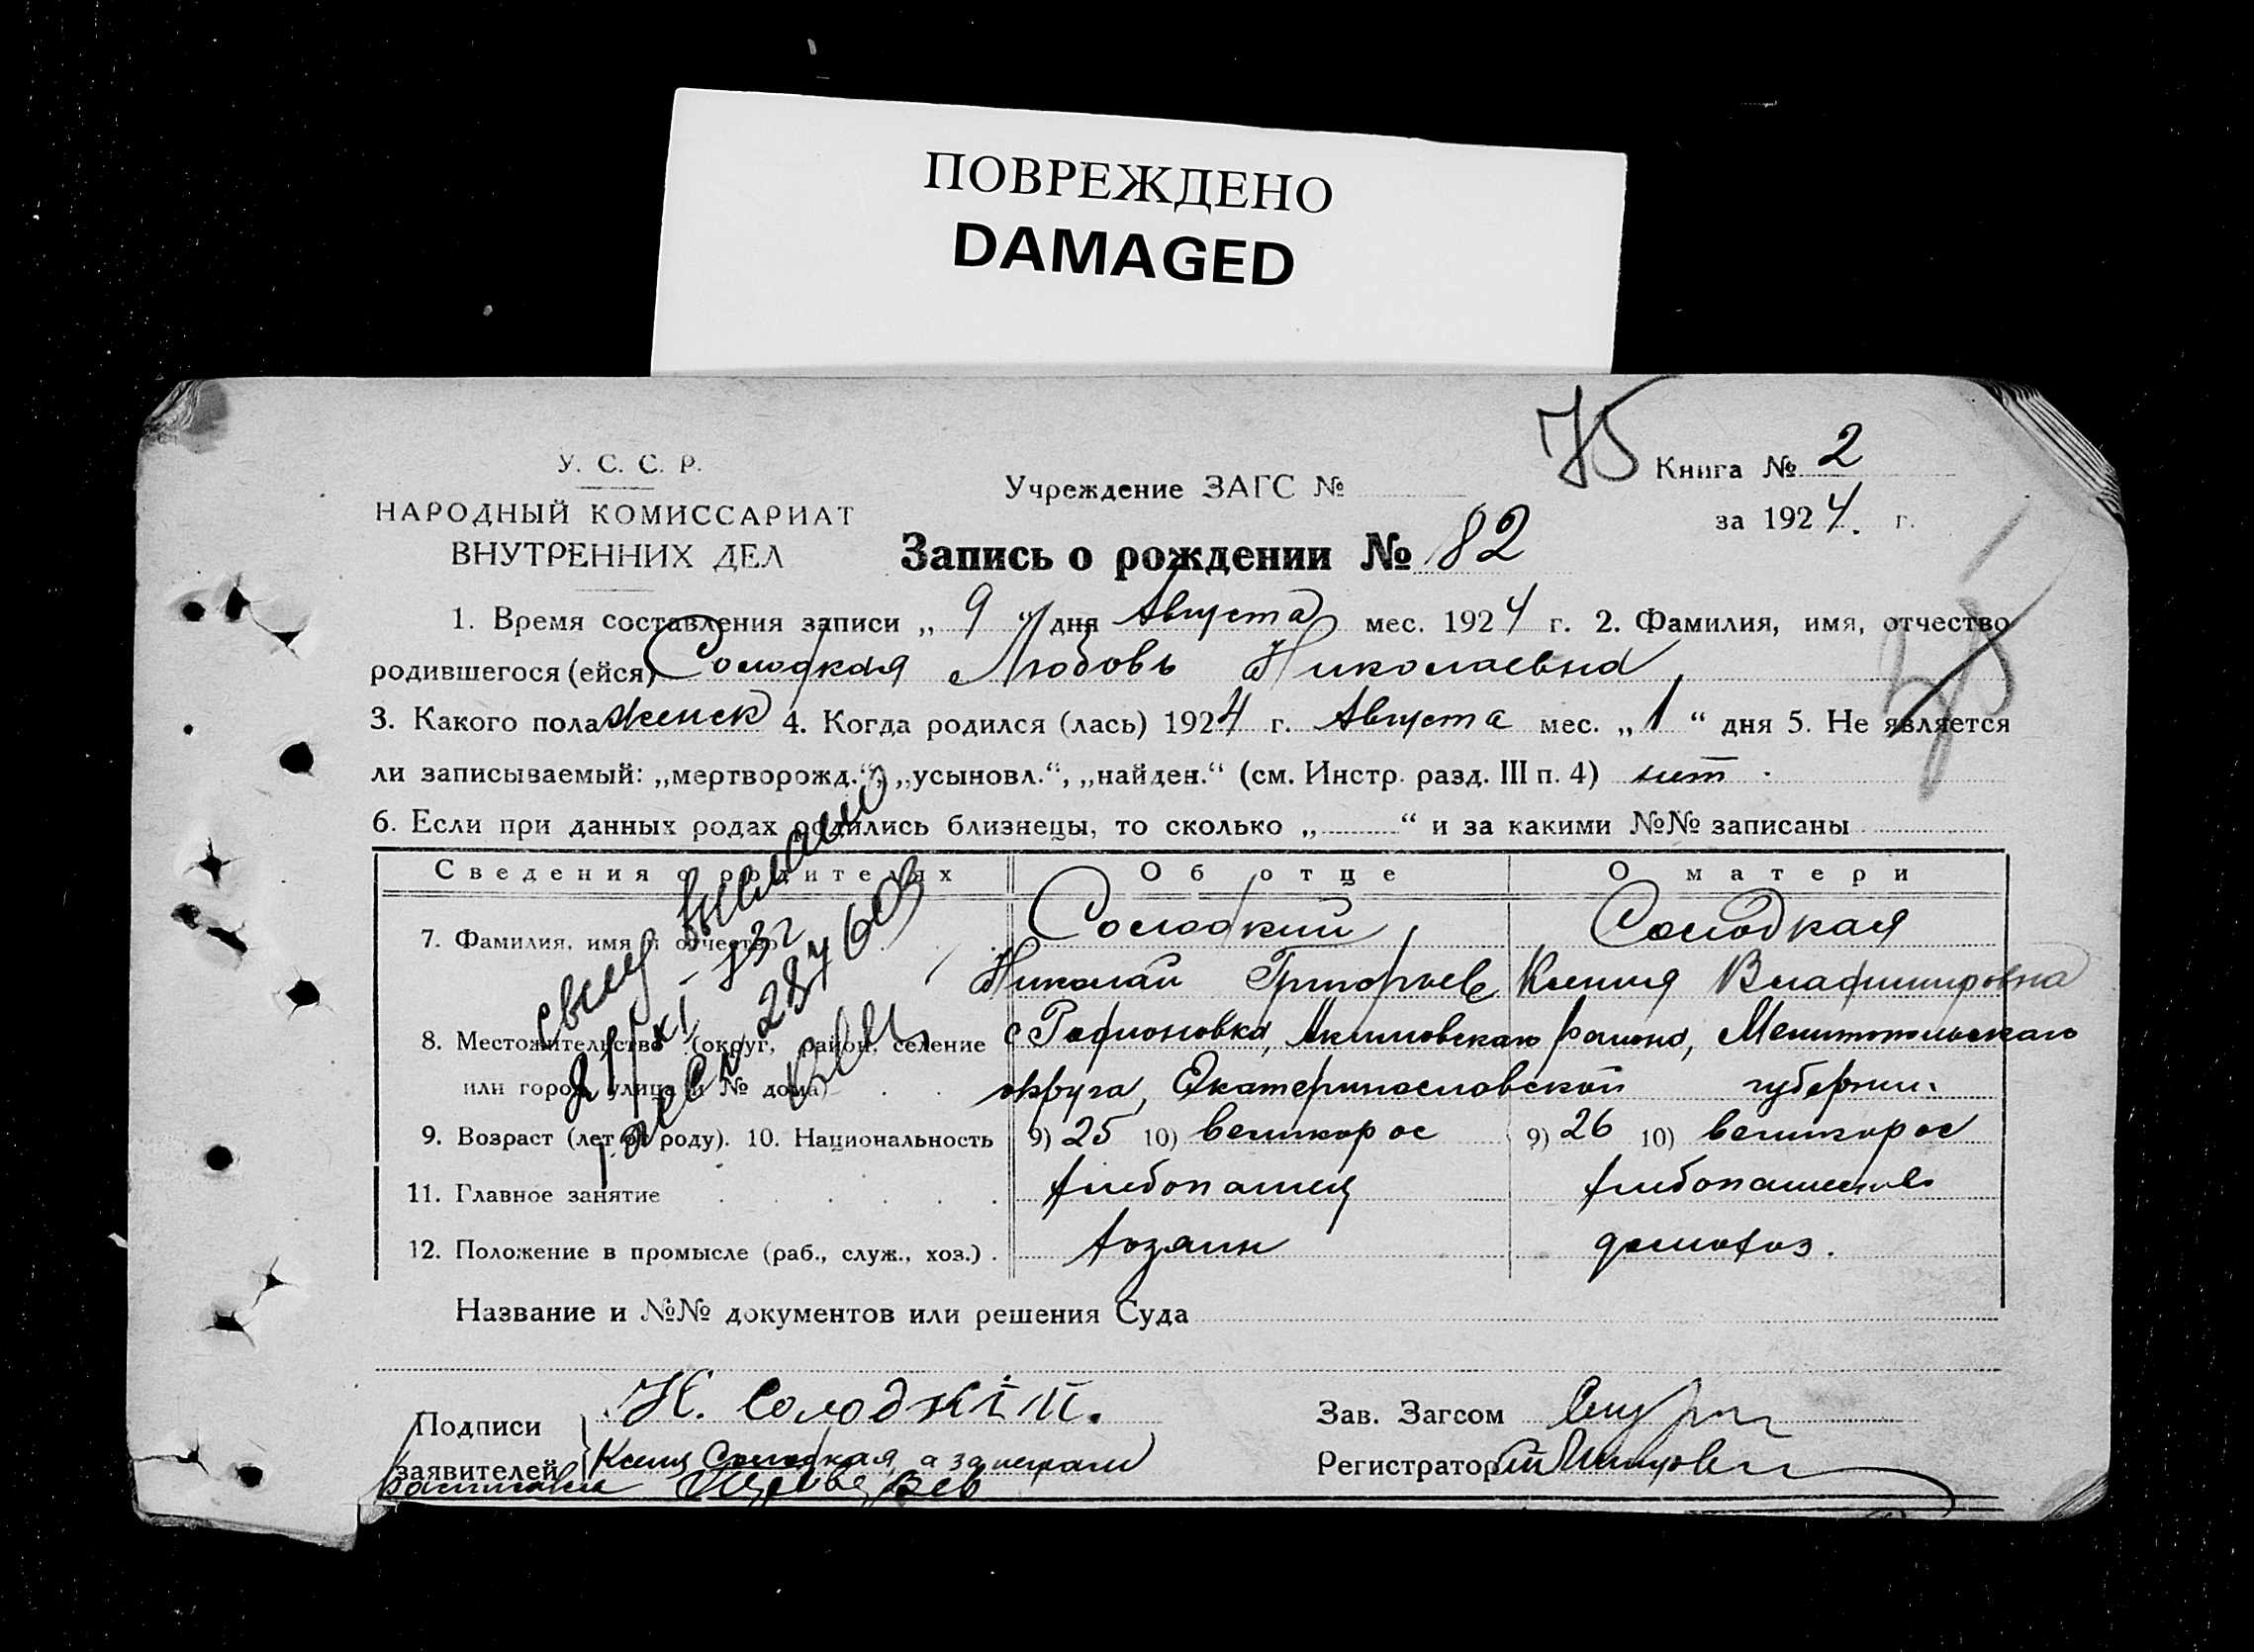 ПОВРЕЖДЕНО
DAMAGED
75
У. С. С. Р.
НАРОДНЫЙ КОМИССАРИАТ
ВНУТРЕННИХ ДЕЛ
Учреждение ЗАГС №
Книга № 2
за 1924. г.
Запись о рождении № 82
1. Время составления записи „ 9 “ дня Августа мес. 1924 г. 2. Фамилия, имя, отчество
родившегося (ейся) Солодкая Любовь Николаевна
3. Какого пола женск 4. Когда родился (лась) 1924 г. Августа мес. „ 1 “ дня 5. Не является
ли записываемый: „мертворожд.“, „усыновл.“, „найден.“ (см. Инстр. разд. III п. 4) нет .
6. Если при данных родах родились близнецы, то сколько „ “ и за какими №№ записаны
Сведения о родителях Об отце О матери
7. Фамилия, имя и отчество Солодкий Солодкая
Николай Григорьев Ксения Владимировна
8. Местожительство (округ, район, селение с Родионовка, Акимовского района, Мелитопольского
или город, улица и № дома) округа, Екатеринославской губернии.
9. Возраст (лет от роду). 10. Национальность 9) 25 10) великорос 9) 26 10) великорос
11. Главное занятие хлебопашец хлебопашество
12. Положение в промысле (раб., служ., хоз.) . хозяин домохоз.
Название и №№ документов или решения Суда
Подписи
заявителей
Н. Солодкій.
Ксения Солодкая, а за неграм
Зав. Загсом
Регистратор